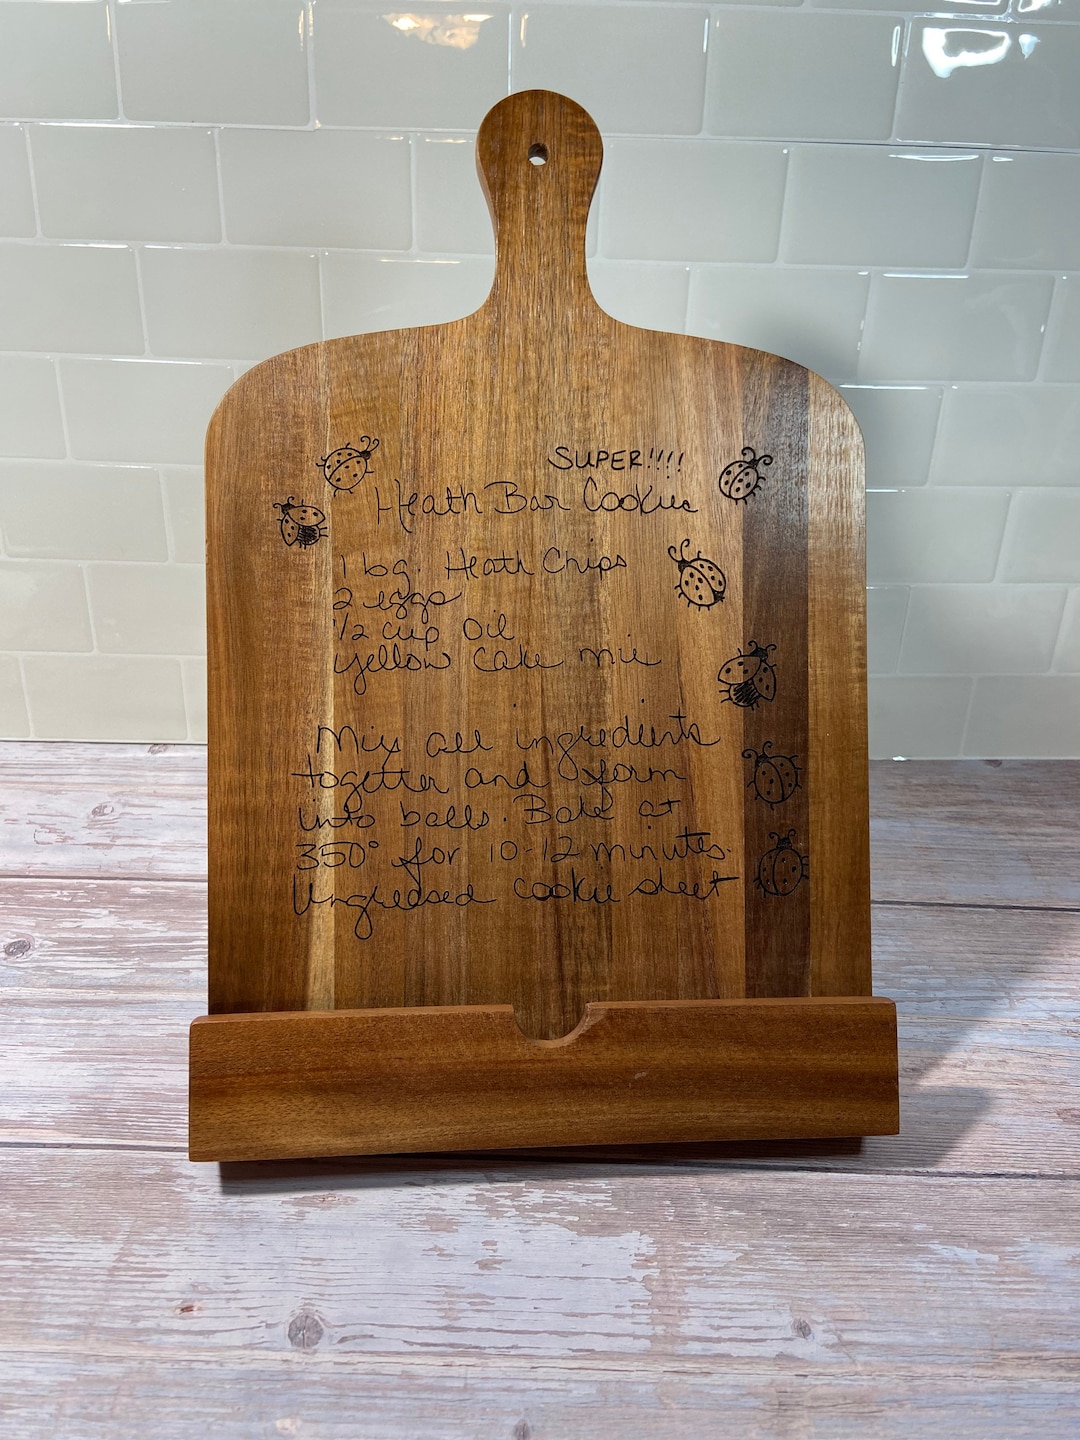 SUPER!!!!
Heath Bar Cookies
1 bg. Heath Chips
2 eggs
1/2 cup Oil
yellow cake mix
Mix all ingredients
together and form
into balls. Bake at
350° for 10-12 minutes.
Ungreased cookie sheet